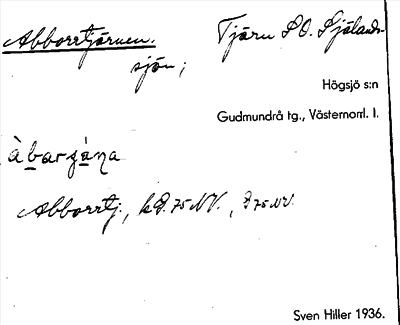 Abborrtjärnen. Tjärn SO. Själands-
sjön;
Högsjö s:n
Gudmundrå tg., Västernorrl. l.
àbarzána
Abborrtj., kD. 75 NV., J 75 NV.
Sven Hiller 1936.